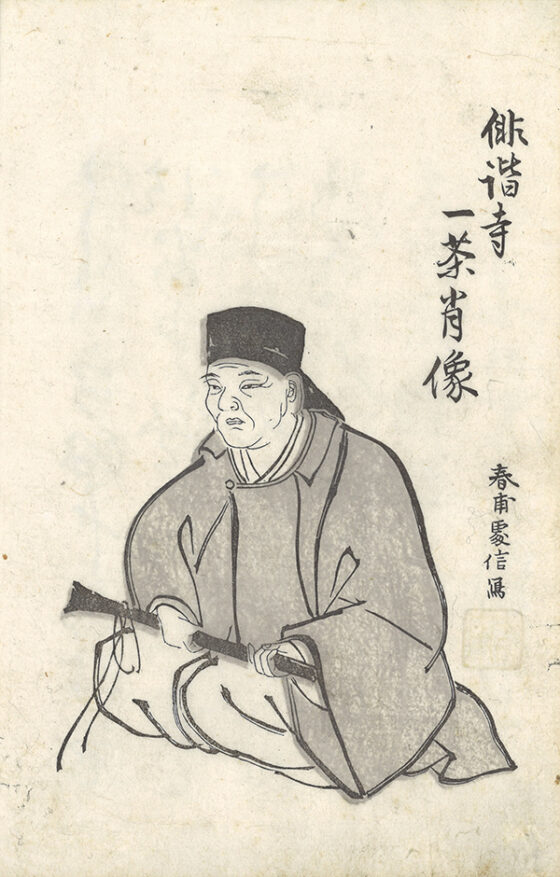 俳諧寺
一茶肖像
春甫信寫